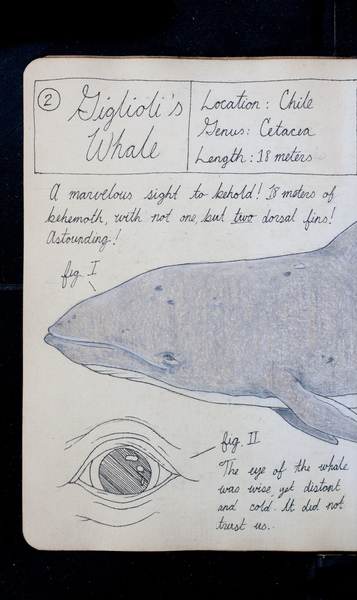 2
Giglioli's
Whale
Location: Chile
Genus: Cetacea
Length: 18 meters
A marvelous sight to behold! 18 meters of
behemoth, with not one, but two dorsal fins!
Astounding!
fig. I
fig. II
The eye of the whale
was wise, yet distant
and cold. It did not
trust us.